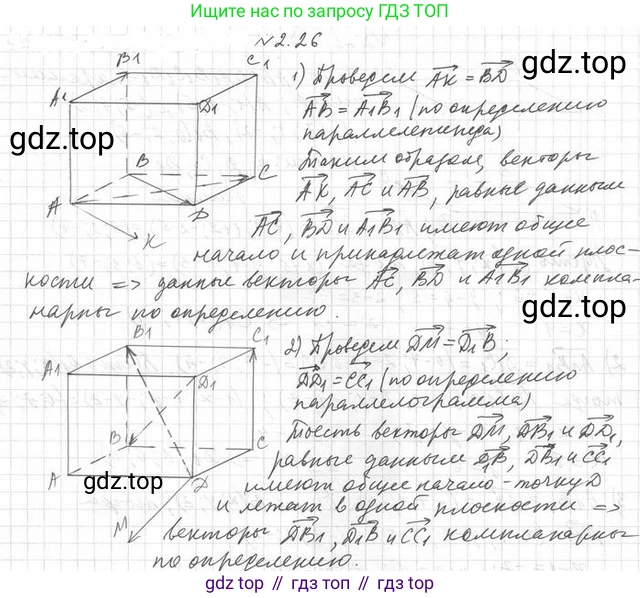 Ищите нас по запросу ГДЗ ТОП
№2.26
B1 C1 A1 D1 B C A D K
1) Проведем AK = BD
AB = A1B1 (по определению
параллелепипеда)
Таким образом, векторы
AK, AC и AB, равные данным
AC, BD и A1B1 имеют общее
начало и принадлежат одной плос-
кости => данные векторы AC, BD и A1B1 компла-
нарны по определению.
B1 C1 A1 D1 B C A D M
2) Проведем DM = D1B;
DD1 = CC1 (по определению
параллелограмма)
То есть векторы DM, DB1 и DD1,
равные данным D1B, DB1 и CC1
имеют общее начало - точку D
и лежат в одной плоскости =>
векторы DB1, D1B и CC1 компланарны
по определению.
gdz.top
gdz.top
gdz.top
gdz.top
gdz top // гдз топ // gdz top // гдз топ // gdz top